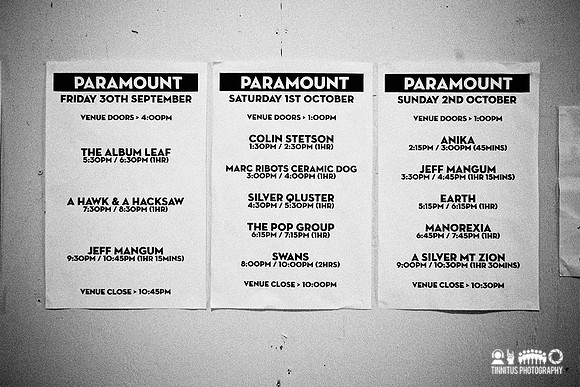 PARAMOUNT
FRIDAY 30TH SEPTEMBER
VENUE DOORS > 4:00PM
THE ALBUM LEAF
5:30PM / 6:30PM (1HR)
A HAWK & A HACKSAW
7:30PM / 8:30PM (1HR)
JEFF MANGUM
9:30PM / 10:45PM (1HR 15MINS)
VENUE CLOSE > 10:45PM
PARAMOUNT
SATURDAY 1ST OCTOBER
VENUE DOORS > 1:00PM
COLIN STETSON
1:30PM / 2:30PM (1HR)
MARC RIBOTS CERAMIC DOG
3:00PM / 4:00PM (1HR)
SILVER QLUSTER
4:30PM / 5:30PM (1HR)
THE POP GROUP
6:15PM / 7:15PM (1HR)
SWANS
8:00PM / 10:00PM (2HRS)
VENUE CLOSE > 10:00PM
PARAMOUNT
SUNDAY 2ND OCTOBER
VENUE DOORS > 1:00PM
ANIKA
2:15PM / 3:00PM (45MINS)
JEFF MANGUM
3:30PM / 4:45PM (1HR 15MINS)
EARTH
5:15PM / 6:15PM (1HR)
MANOREXIA
6:45PM / 7:45PM (1HR)
A SILVER MT ZION
9:00PM / 10:30PM (1HR 30MINS)
VENUE CLOSE > 10:30PM
TINNITUS PHOTOGRAPHY